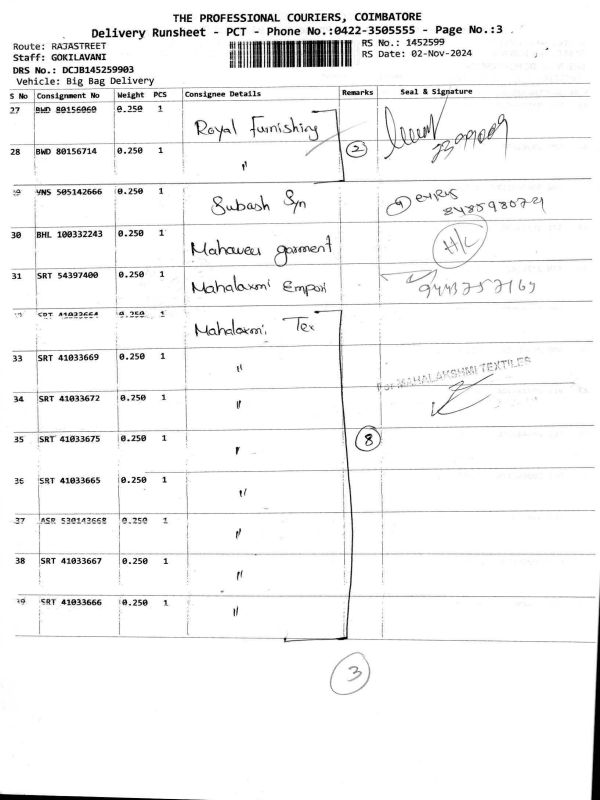 THE PROFESSIONAL COURIERS, COIMBATORE
Delivery Runsheet - PCT - Phone No.:0422-3505555 - Page No.:3
Route: RAJASTREET
RS No.: 1452599
Staff: GOKILAVANI
RS Date: 02-Nov-2024
DRS No.: DCJB145259903
Vehicle: Big Bag Delivery
S No Consignment No Weight PCS Consignee Details Remarks Seal & Signature
27 BWD 80156060 0.250 1 Royal Furnishing
28 BWD 80156714 0.250 1 " 2
29 VNS 505142666 0.250 1 Subash Syn
30 BHL 100332243 0.250 1 Mahaveer garment H/C
31 SRT 54397400 0.250 1 Mahalaxmi Empori 9443757169
SRT 41033664 0.250 1 Mahalaxmi Tex
33 SRT 41033669 0.250 1 " For MAHALAKSHMI TEXTILES
34 SRT 41033672 0.250 1 "
35 SRT 41033675 0.250 1 " 8
36 SRT 41033665 0.250 1 "
37 ASR 530143668 0.250 1 "
38 SRT 41033667 0.250 1 "
39 SRT 41033666 0.250 1 "
3